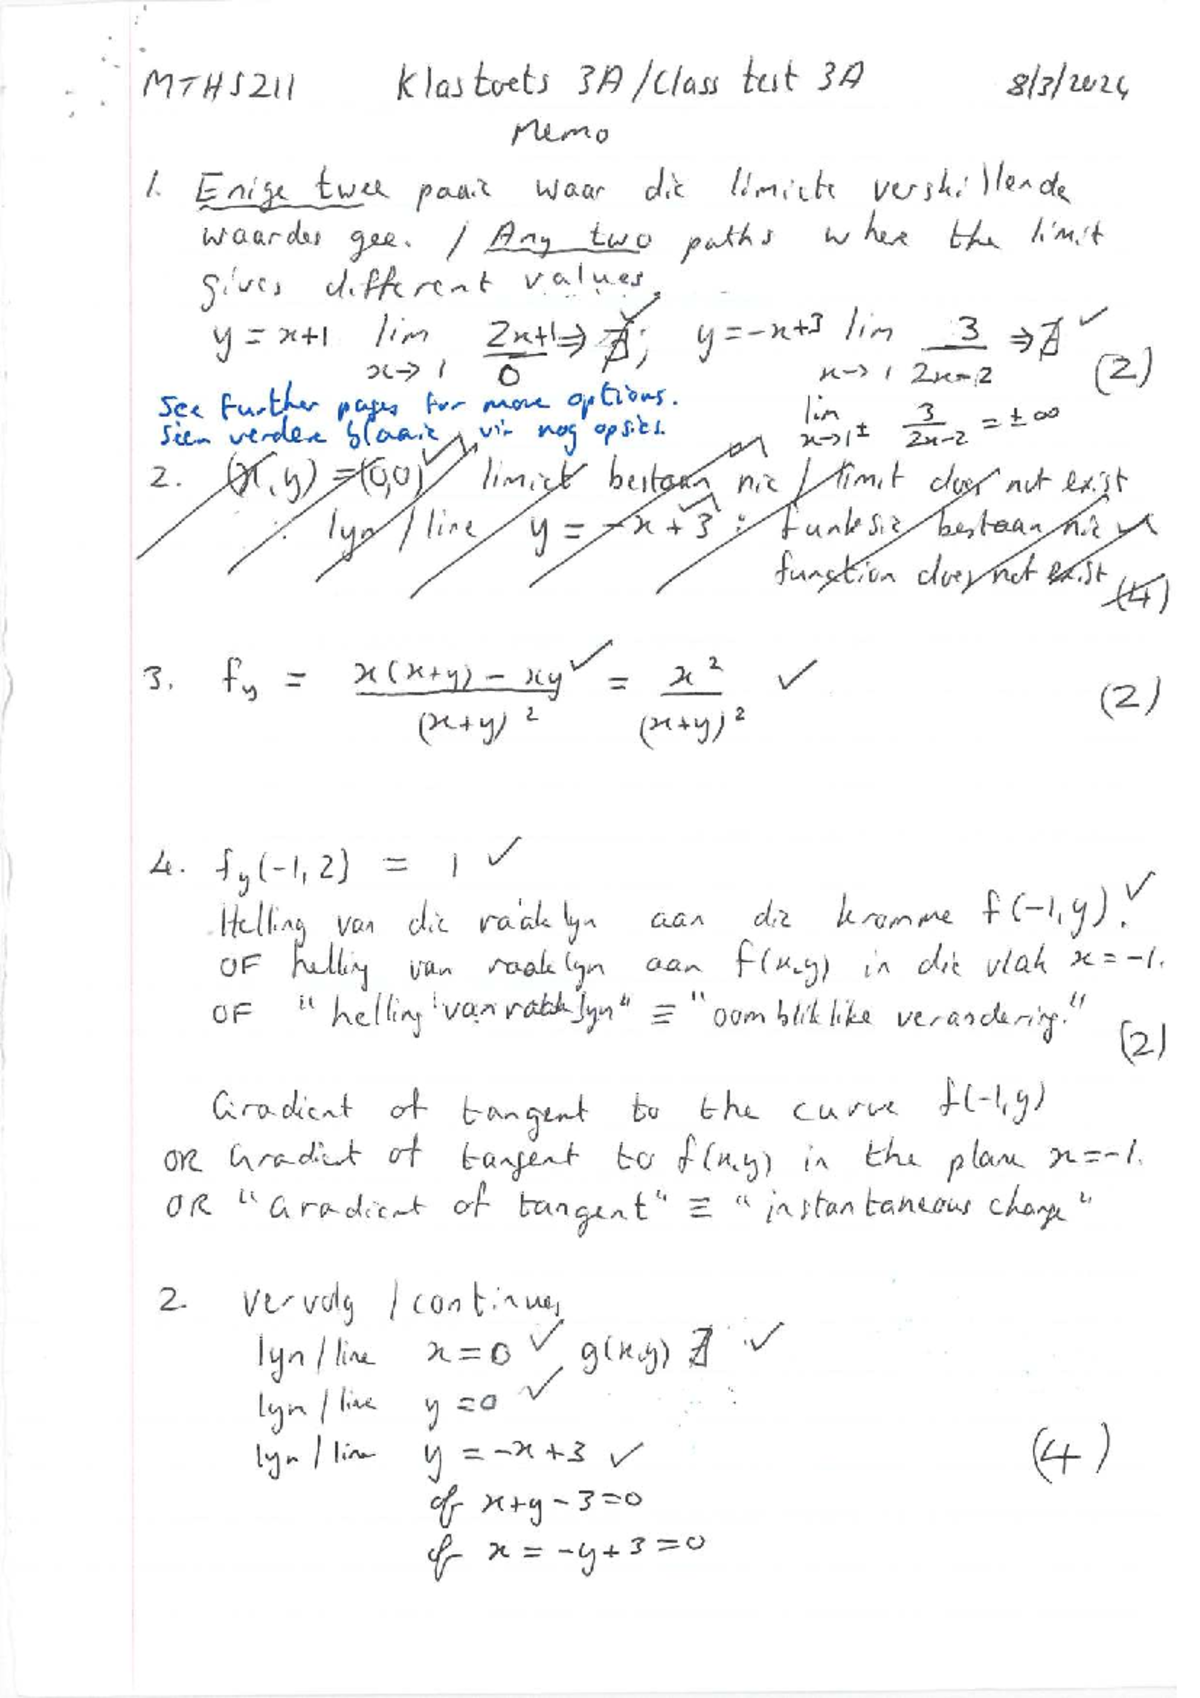 MTHS211 Klastoets 3A / Class test 3A 8/3/2024
Memo
1. Enige twee paaie waar die limiete verskillende
waardes gee. / Any two paths where the limit
gives different values
y = x+1 lim x→1 (2x+1)/0 ⇒ ∄; y = -x+3 lim x→1 3/(2x-2) ⇒ ∄ (2)
See further pages for more options.
Sien verdere blaaie vir nog opsies.
lim x→1± 3/(2x-2) = ±∞
2. (x,y) = (0,0) limiet bestaan nie / limit does not exist
lyn / line y = -x+3 : funksie bestaan nie
function does not exist (4)
3. fy = (x(x+y) - xy)/(x+y)² = x²/(x+y)² (2)
4. fy(-1,2) = 1
Helling van die raaklyn aan die kromme f(-1,y).
OF helling van raaklyn aan f(x,y) in die vlak x = -1.
OF "helling van raaklyn" ≡ "oombliklike verandering."
(2)
Gradient of tangent to the curve f(-1,y)
OR Gradient of tangent to f(x,y) in the plane x=-1.
OR "Gradient of tangent" ≡ "instantaneous change"
2. vervolg / continues
lyn / line x = 0 g(x,y) ∄
lyn / line y = 0
lyn / line y = -x+3 (4)
of x+y-3=0
of x = -y+3=0